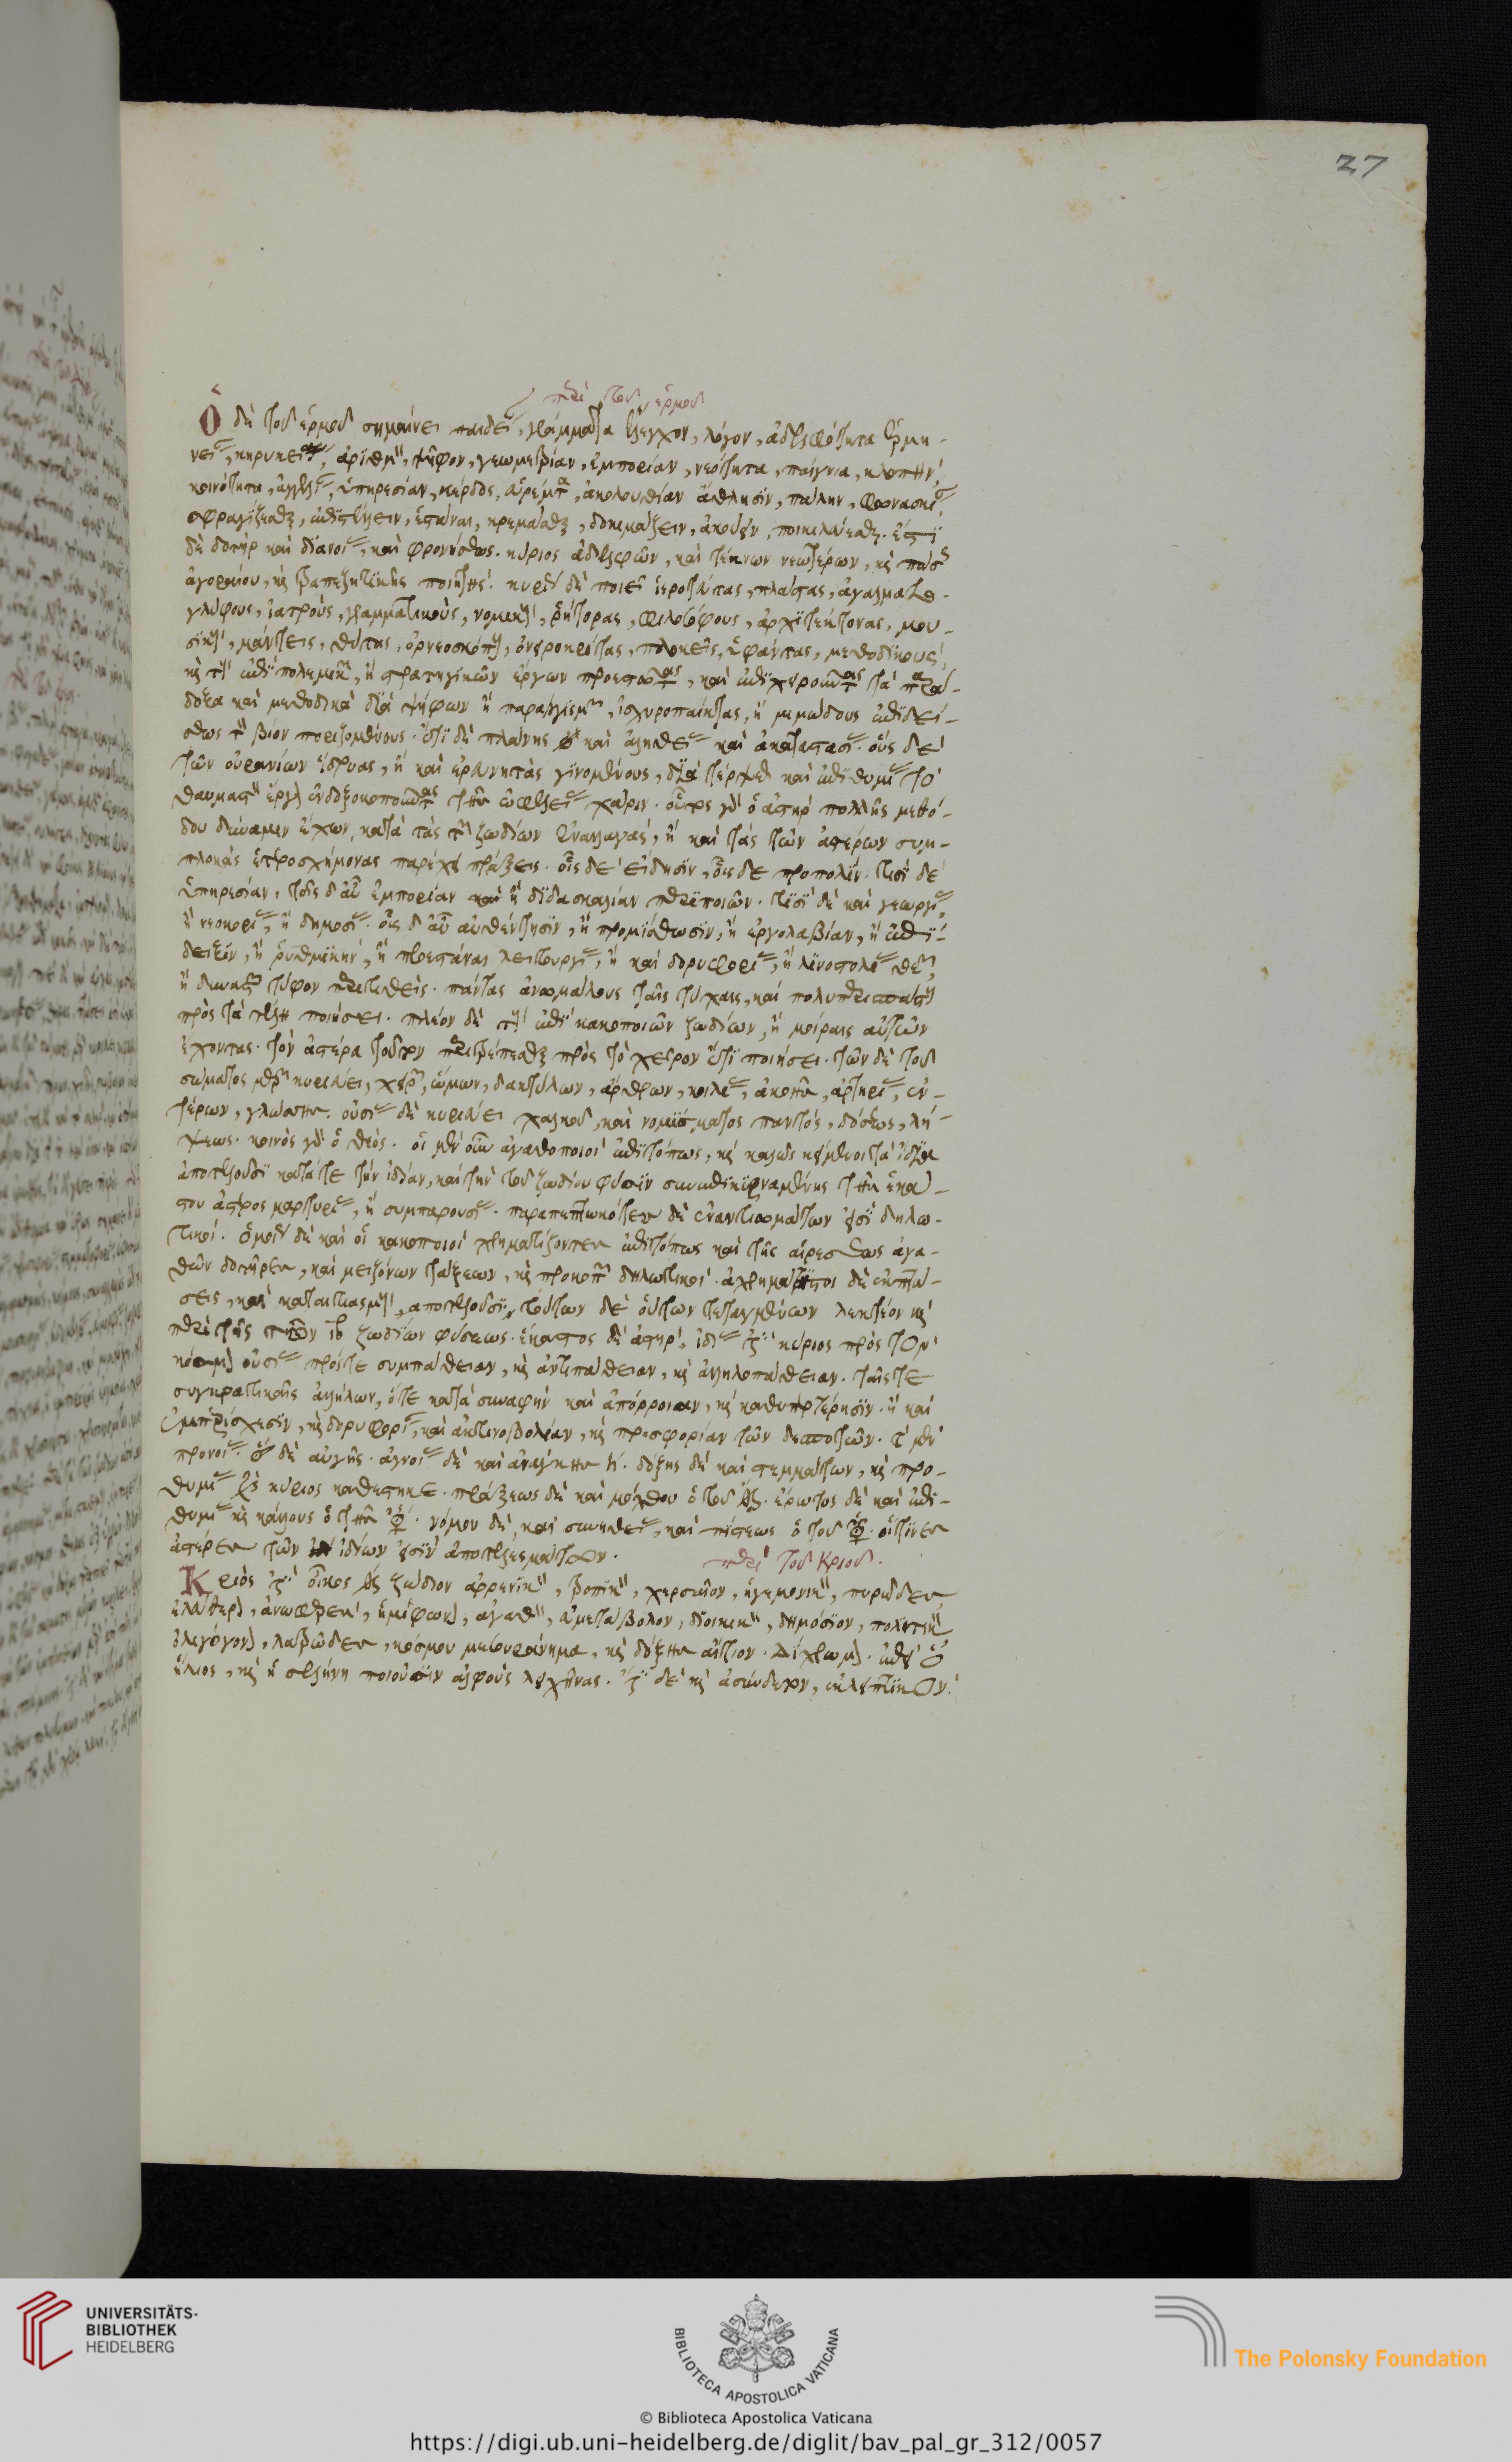 27
περὶ τοῦ ἑρμοῦ
Ὁ δὲ τοῦ ἑρμοῦ σημαίνει παιδείαν, γράμματα ἔλεγχον, λόγον, ἀδελφότητα ἑρμη-
νείαν, κηρυκείαν, ἀριθμὸν, ψῆφον, γεωμετρίαν, ἐμπορίαν, νεότητα, παίγνια, κλοπὴν,
κοινότητα, ἀγγελίαν, ὑπηρεσίαν, κέρδος, εὑρέματα, ἀκολουθίαν ἄθλησιν, πάλην, φωνασκίαν,
σφραγίζεσθαι, ἐπιστέλλειν, ἱστάναι, κρεμάσθαι, δοκιμάζειν, ἀκούειν, ποικιλεύεσθαι. ἔστι
δὲ δοτὴρ καὶ διανοίας, καὶ φρονήσεως. κύριος ἀδελφῶν, καὶ τέκνων νεωτέρων, καὶ πάσης
ἀγοραίου, καὶ τραπεζητικῆς ποιητής. κυρίως δὲ ποιεῖ ἱεροπλάστας, πλάστας, ἀγαλματο-
γλύφους, ἰατροὺς, γραμματικοὺς, νομικοὺς, ῥήτορας, φιλοσόφους, ἀρχιτέκτονας, μου-
σικοὺς, μάντεις, θύτας, ὀρνεοσκόπους, ὀνειροκρίτας, πλοκεῖς, ὑφάντας, μεθοδικούς,
καὶ τοὺς ἐπὶ πολεμικῶν, ἢ στρατηγικῶν ἔργων προεστῶτας, καὶ ἐπιχειροῦντας τὰ παρά-
δοξα καὶ μεθοδικὰ διὰ ψήφων ἢ παραλογισμῶν, ἰσχυροπαίκτας, ἢ μιμώδους ἐπιδεί-
ξεως τὸν βίον ποριζομένους. ἔτι δὲ πλάνης καὶ ἀληθείας καὶ ἀκαταστασίας. οὓς δὲ
τῶν οὐρανίων ἵδρυας, ἢ καὶ ἐρευνητὰς γινομένους, διὰ τέρψιν καὶ ἐπιθυμίαν τὸ
θαυμαστὸν ἔργον ἐνδοξοκοποῦντας τῆς ὠφελείας χάριν. οὗτος γὰρ ὁ ἀστὴρ πολλῆς μεθό-
δου δύναμιν ἔχων, κατὰ τὰς τῶν ζωδίων ἐναλλαγὰς, ἢ καὶ τὰς τῶν ἀστέρων συμ-
πλοκὰς ἑτεροσχήμονας παρέχει πράξεις. οἷς δὲ εἴδησιν, οἷς δὲ προπολεῖν. τισὶ δὲ
ὑπηρεσίαν, τοῖς δ' αὖ ἐμπορίαν ἢ διδασκαλίαν περιποιῶν. τισὶ δὲ καὶ γεωργίαν,
ἢ νεοκορίαν, ἢ δημοσίαν. οἷς δ' αὖ αὐθέντησιν, ἢ προμίσθωσιν, ἢ ἐργολαβίαν, ἢ ἐπί-
δειξιν, ἢ ῥυθμικὴν, ἢ προεστάναι λειτουργίας, ἢ καὶ δορυφορίαν, ἢ λινοστολίαν θεῶν,
ἢ δυναστῶν τύφον περιτιθεὶς. πάντας ἀνωμάλους ταῖς τύχαις, καὶ πολυπερισπάστους
πρὸς τὰ τέλη ποιήσει. πλέον δὲ τοὺς ἐπὶ κακοποιῶν ζωδίων, ἢ μοίραις αὐτῶν
ἔχοντας. τὸν ἀστέρα τοῦτον περιτρέπεσθαι πρὸς τὸ χεῖρον ἔτι ποιήσει. τῶν δὲ τοῦ
σώματος μερῶν κυριεύει, χειρῶν, ὤμων, δακτύλων, ἄρθρων, κοιλίας, ἀκοῆς, ἀρτηρίας, ἐν-
τέρων, γλώσσης. οὐσίας δὲ κυριεύει χαλκοῦ, καὶ νομίσματος παντός, δόσεως, λή-
ψεως. κοινὸς γὰρ ὁ θεός. οἱ μὲν οὖν ἀγαθοποιοὶ ἐπιτόπως, καὶ καλῶς κείμενοι τὰ ἴδια
ἀποτελοῦσι κατά τε τὴν ἰδίαν, καὶ τὴν τοῦ ζωδίου φύσιν συνεπικιρναμένης τῆς ἑκά-
στου ἀστέρος μαρτυρίας, ἢ συμπαρουσίας. παραπεπτωκότες δὲ ἐναντιωμάτων εἰσὶ δηλω-
τικοί. ὁμοίως δὲ καὶ οἱ κακοποιοὶ χρηματίζοντες ἐπιτόπως καὶ τῆς αἱρέσεως ἀγα-
θῶν δοτῆρες, καὶ μειζόνων τάξεων, καὶ προκοπῶν δηλωτικοί. ἀχρημάτιστοι δὲ ἐκπτώ-
σεις, καὶ καταιτιασμοὺς, ἀποτελοῦσι. τούτων δὲ οὕτων τεταγμένων λεκτέον καὶ
περὶ τῆς τῶν ιβ ζωδίων φύσεως. ἕκαστος δὲ ἀστὴρ, ἰδίας ἐστὶ κύριος πρὸς τὸν
κόσμον οὐσίας πρός τε συμπάθειαν, καὶ ἀντιπάθειαν, καὶ ἀλληλοπάθειαν. ταῖς τε
συγκρατικαῖς ἀλλήλων, ὅτε κατὰ συναφὴν καὶ ἀπόρροιαν, καὶ καθυπερτέρησιν. ἢ καὶ
ἐμπερίσχεσιν, καὶ δορυφορίαν, καὶ ἀκτινοβολίαν, καὶ προσφορίαν τῶν δεσποτῶν. ☾ μὲν
προνοίας. ☉ δὲ αὐγῆς. ἀγνοίας δὲ καὶ ἀνάγκης ♄. δόξης δὲ καὶ στεμμάτων, καὶ προ-
θυμίας ♃ κύριος καθέστηκε. πράξεως δὲ καὶ μόχθου ὁ τοῦ ♂. ἔρωτος δὲ καὶ ἐπι-
θυμίας καὶ κάλλους ὁ τῆς ♀. νόμου δὲ, καὶ συνηθείας, καὶ πίστεως ὁ τοῦ ☿. οἵτινες
ἀστέρες τῶν ἰδίων εἰσὶν ἀποτελεσμάτων.
περὶ τοῦ Κριοῦ.
Κριὸς ἐστὶ οἶκος ♂ ζώδιον ἀρρενικὸν, τροπικὸν, χερσαῖον, ἡγεμονικὸν, πυρῶδες
ἐλεύθερον, ἀνωφερὲς, ἡμίφωνον, ἀγαθὸν, ἀμετάβολον, διοικητικὸν, δημόσιον, πολιτικὸν
ὀλιγόγονον, λατρῶδες, κόσμου μεσουράνημα, καὶ δόξης αἴτιον. δίχρωμον. ἐπεὶ ὁ
ἥλιος, καὶ ἡ σελήνη ποιοῦσιν ἀλφοὺς λειχῆνας. ἐστὶ δὲ καὶ ἀσύνδετον, ἐκλειπτικὸν.
UNIVERSITÄTS-
BIBLIOTHEK
HEIDELBERG
BIBLIOTECA APOSTOLICA VATICANA
The Polonsky Foundation
© Biblioteca Apostolica Vaticana
https://digi.ub.uni-heidelberg.de/diglit/bav_pal_gr_312/0057